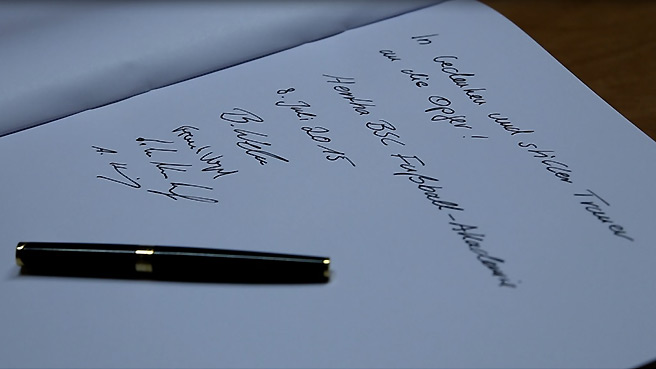 In Gedenken und stiller Trauer
an die Opfer!
Hertha BSC Fußball-Akademie
8. Juli 2015